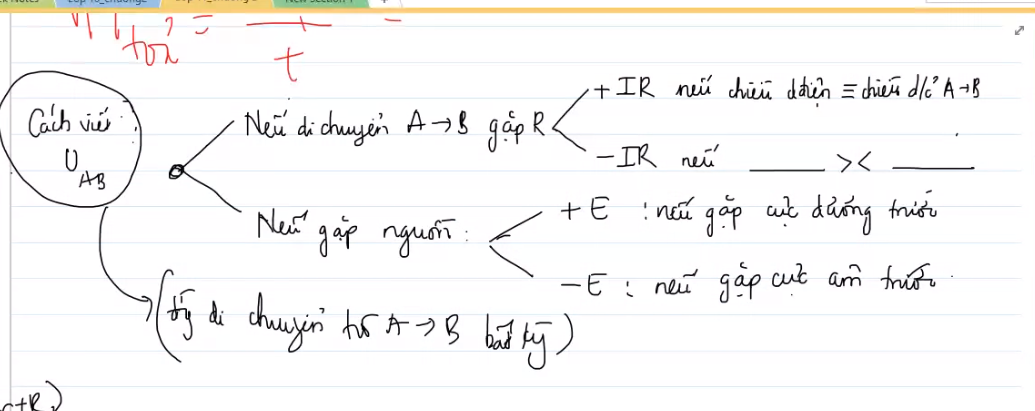 New Section 1
tỏa =
t
Cách viết
U_AB
Nếu di chuyển A → B gặp R
+ IR nếu chiều dđiện ≡ chiều d/c² A → B
– IR nếu ____ >< ____
Nếu gặp nguồn :
+ E : nếu gặp cực dương trước
– E : nếu gặp cực âm trước
(di chuyển từ A → B bất kỳ)
+R)